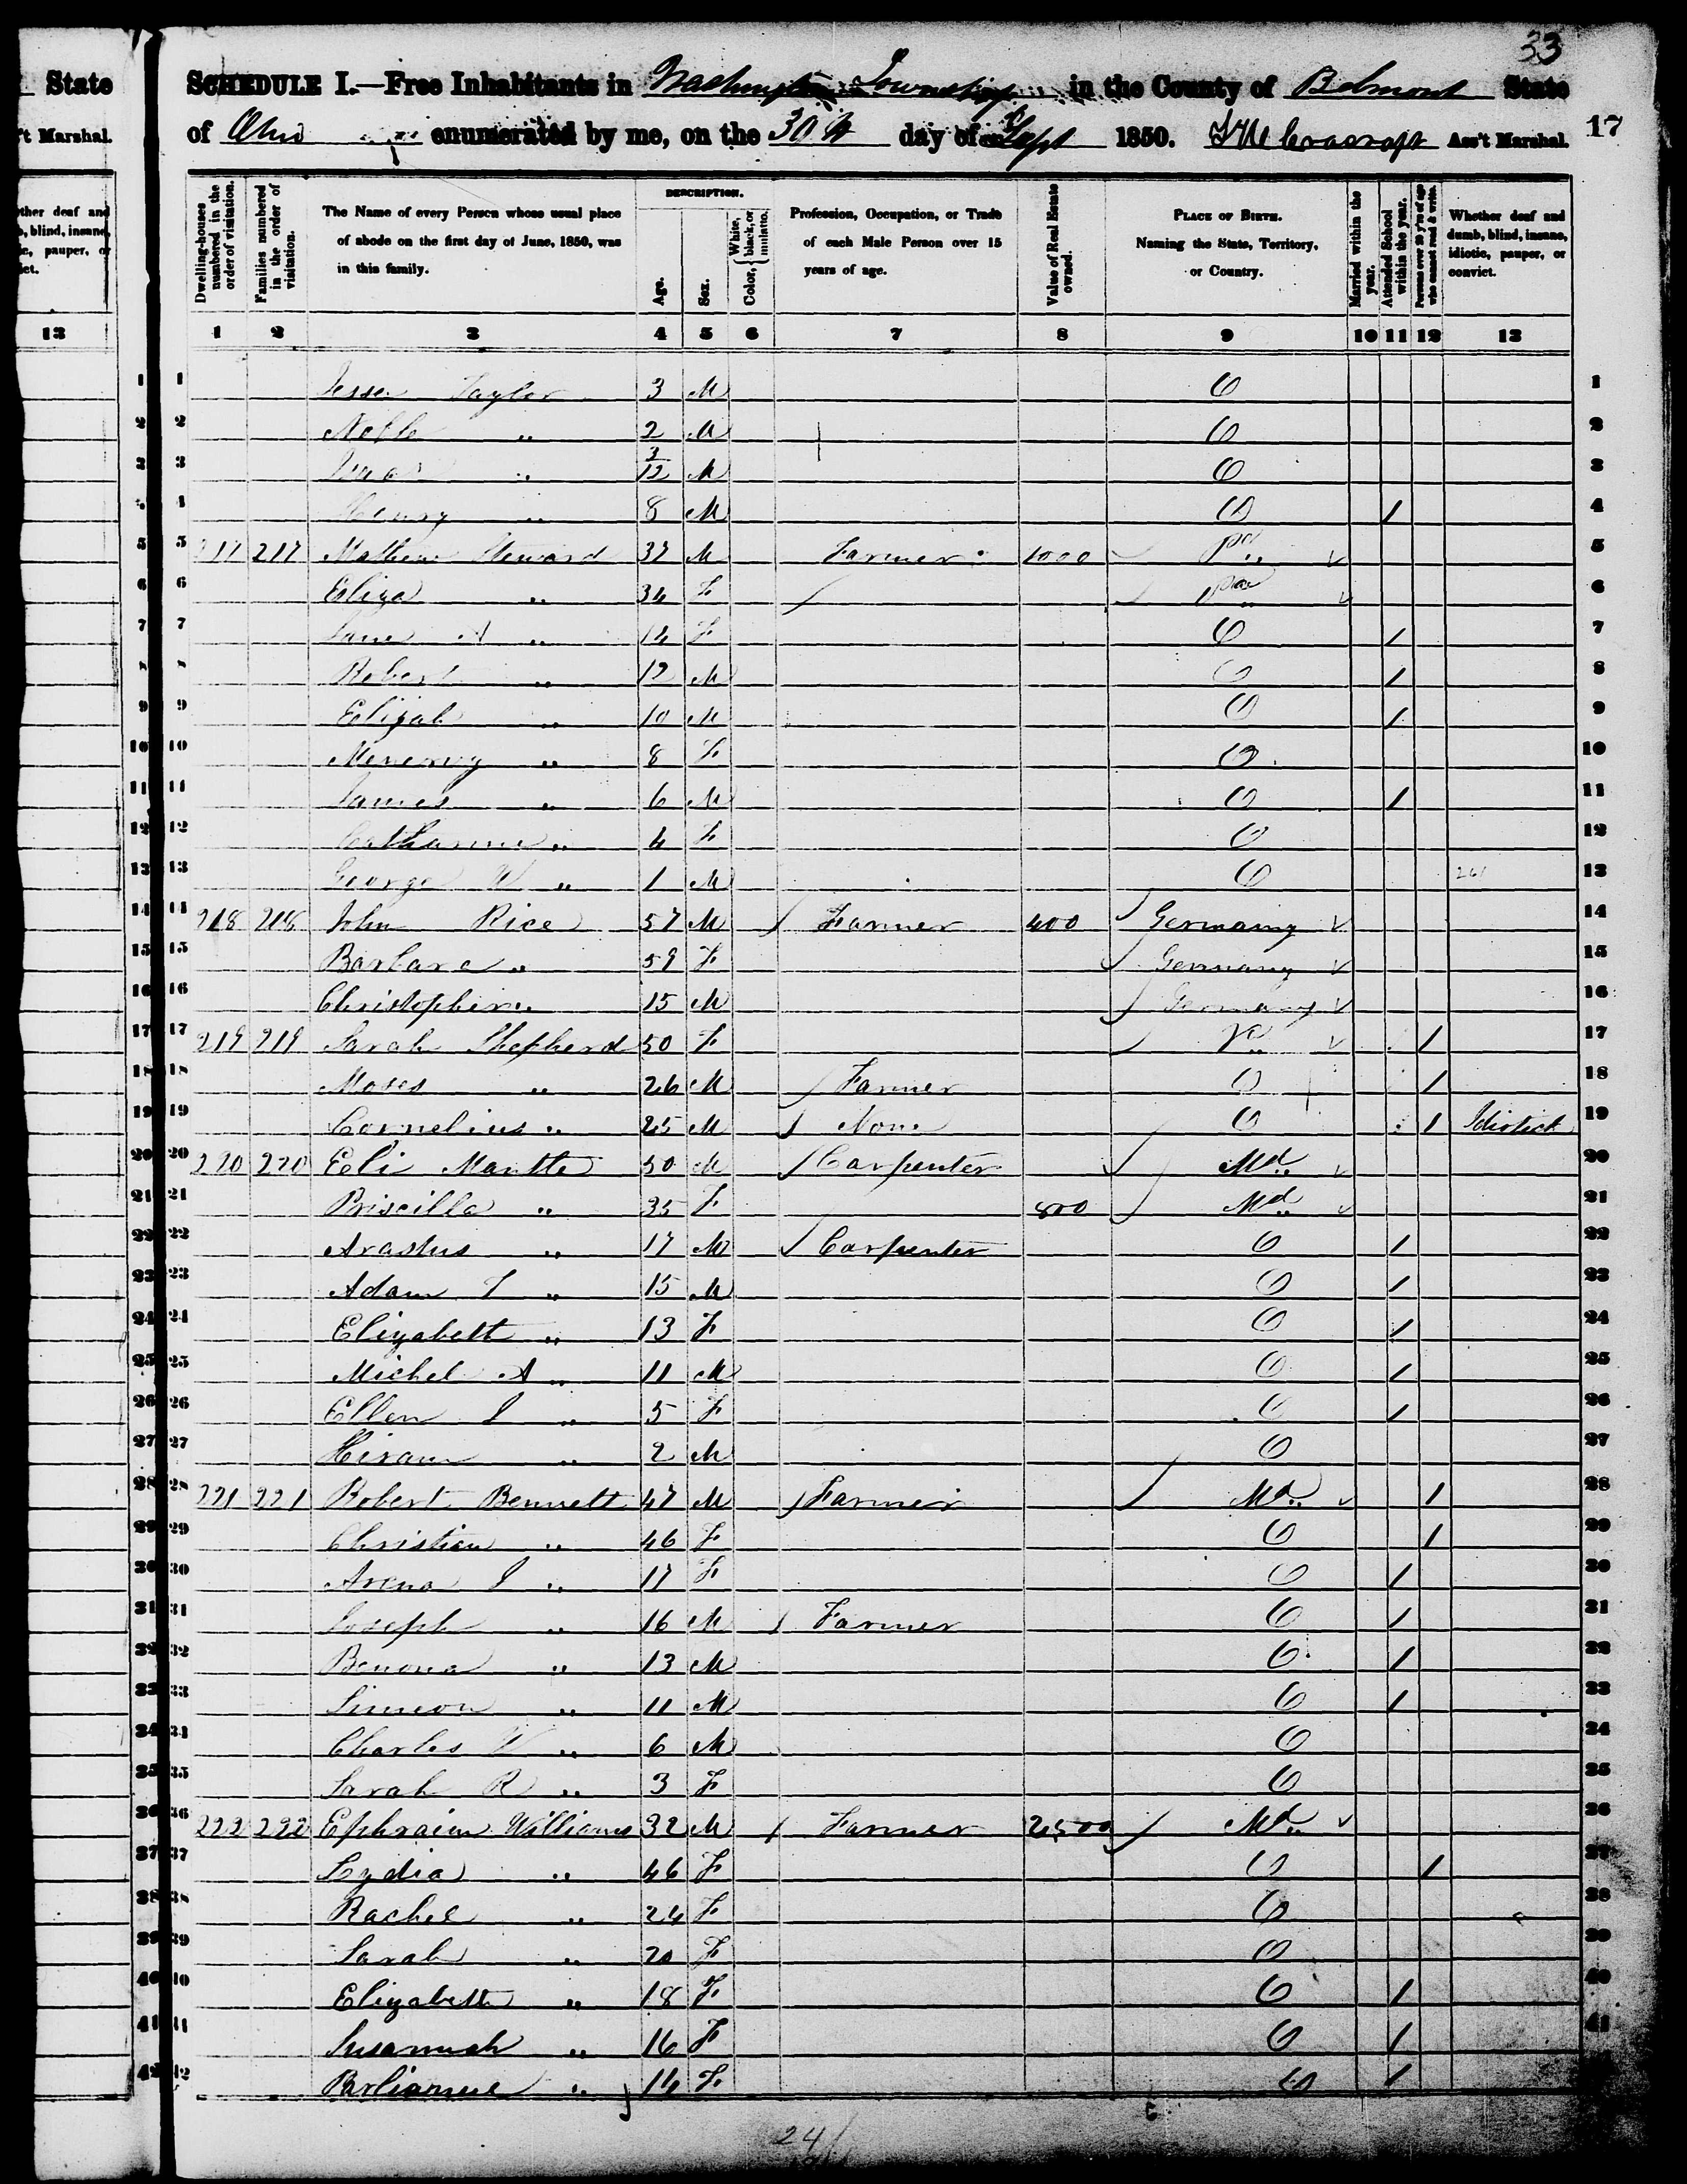 33
State
SCHEDULE I.—Free Inhabitants in Washington Township in the County of Belmont State
't Marshal.
of Ohio enumerated by me, on the 30th day of Sept 1850. Ass't Marshal.
17
ther deaf and
, blind, insane,
c, pauper, or
ict.
13
Dwelling-houses numbered in the order of visitation.
Families numbered in the order of visitation.
The Name of every Person whose usual place of abode on the first day of June, 1850, was in this family.
DESCRIPTION.
Age.
Sex.
Color, { White, black, or mulatto.
Profession, Occupation, or Trade of each Male Person over 15 years of age.
Value of Real Estate owned.
PLACE OF BIRTH. Naming the State, Territory, or Country.
Married within the year.
Attended School within the year.
Persons over 20 y'rs of age who cannot read & write.
Whether deaf and dumb, blind, insane, idiotic, pauper, or convict.
1 2 3 4 5 6 7 8 9 10 11 12 13
1 Jesse Taylor 3 M O 1
2 Noble " 2 M O 2
3 Isaac " 3/12 M O 3
4 Henry " 8 M O / 4
5 217 217 Mathew Steward 37 M Farmer 1000 Pa 5
6 Eliza " 34 F Pa 6
7 Jane A " 14 F O / 7
8 Robert " 12 M O / 8
9 Elijah " 10 M O / 9
10 " 8 F O 10
11 James " 6 M O / 11
12 Catharine " 4 F O 12
13 George W " 1 M O 261 13
14 218 218 John Rice 57 M Farmer 400 Germany 14
15 Barbara " 59 F Germany 15
16 Christopher " 15 M Germany 16
17 219 219 Sarah Shepherd 50 F Va / 17
18 Moses " 26 M Farmer O / 18
19 Cornelius " 25 M None O / Idiotick 19
20 220 220 Eli Mantle 50 M Carpenter Md 20
21 Priscilla " 35 F 800 Md 21
22 Arastus " 17 M Carpenter O / 22
23 Adam " 15 M O / 23
24 Elizabett " 13 F O / 24
25 Michel A " 11 M O / 25
26 Ellen J " 5 F O / 26
27 Hiram " 2 M O 27
28 221 221 Robert Bennett 47 M Farmer Md / 28
29 Christian " 46 F O / 29
30 Arena J " 17 F O / 30
31 Joseph " 16 M Farmer O / 31
32 Benona " 13 M O / 32
33 Simeon " 11 M O / 33
34 Charles W " 6 M O 34
35 Sarah R " 3 F O 35
36 222 222 Ephraim Williams 32 M Farmer 2500 Md 36
37 Lydia " 46 F O / 37
38 Rachel " 24 F O 38
39 Sarah " 20 F O 39
40 Elizabett " 18 F O / 40
41 Susannah " 16 F O / 41
42 " 14 F O /
241